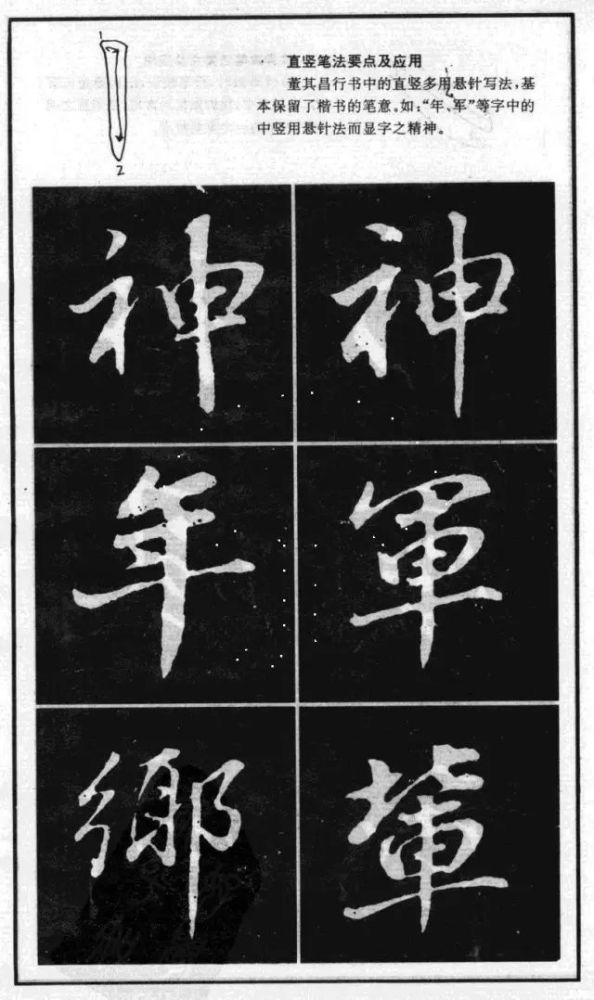 1
2
直竖笔法要点及应用
董其昌行书中的直竖多用悬针写法,基
本保留了楷书的笔意。如:“年、军”等字中的
中竖用悬针法而显字之精神。
神 神
年 軍
鄉 輦